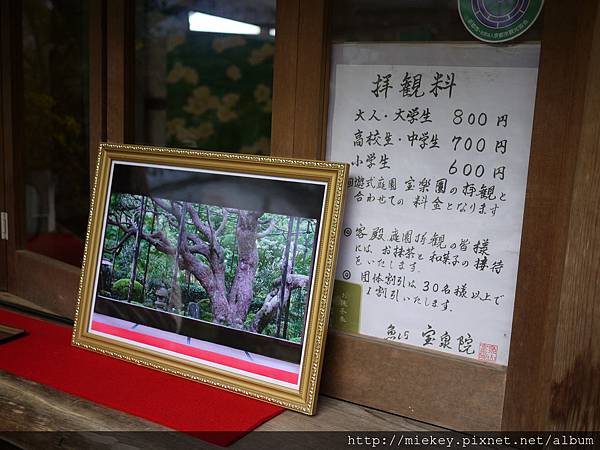 拝観料
大人・大学生 800円
高校生・中学生 700円
小学生 600円
回遊式庭園 宝楽園の拝観と
合わせての 料金となります
◎客殿庭園拝観の皆様
には、お抹茶と和菓子の接待
をいたします。
◎団体割引は、30名様以上で
1割引いたします。
魚山 宝泉院
http://miekey.pixnet.net/album